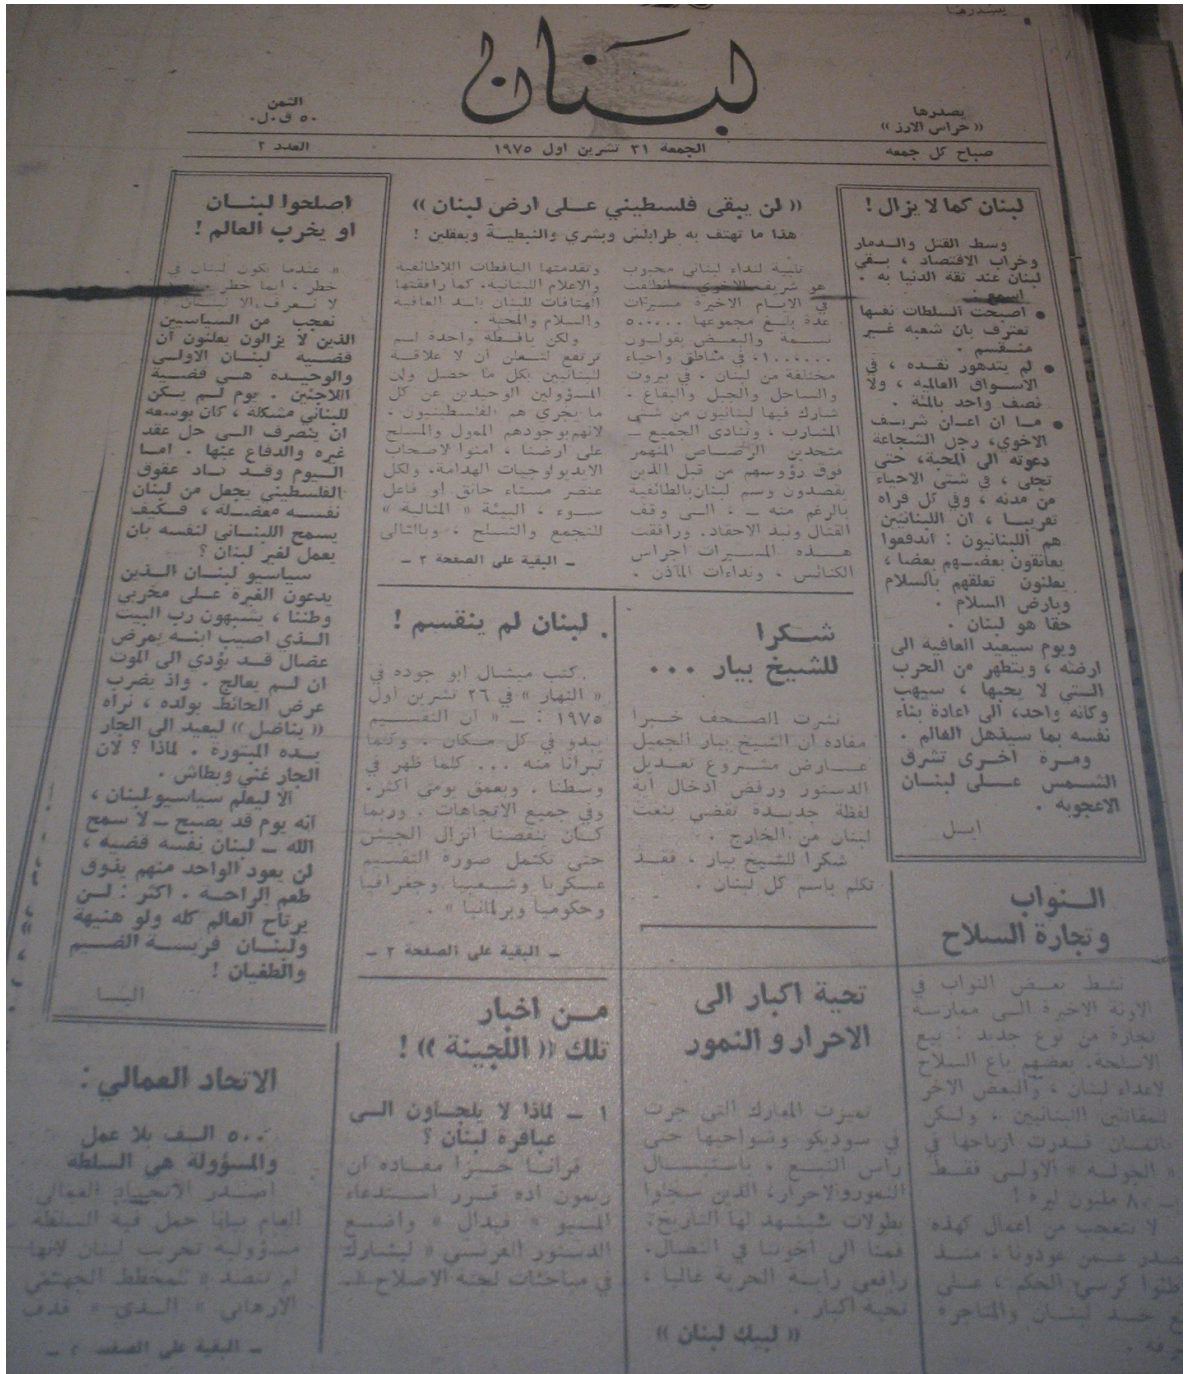 يصدرها
لبنان
يصدرها
« حراس الارز »
الثمن
٥٠ ق٠ل٠
صباح كل جمعه
الجمعة ٣١ تشرين اول ١٩٧٥
العدد ٢
لبنان كما لا يزال !
وسط القتل والـدمار
وخراب الاقتصاد ، يبقى
لبنان عند ثقة الدنيا به .
اسمع :
● اصبحت السلطات نفسها
تعترف بان شعبه غير
منقسم .
● لم يتدهور نقده ، في
الاسواق العالميه ، ولا
نصف واحد بالمئة .
● ما ان اعلن شريف
الاخوي، رجل الشجاعة
دعوته الى المحبة، حتى
تجلى ، في شتى الاحياء
من مدنه ، وفي كل قراه
تقريبا ، ان اللبنانيين
هم اللبنانيون : اندفعوا
يعانقون بعضهم بعضا ،
يعلنون تعلقهم بالسلام
وبارض السلام .
حقا هو لبنان .
ويوم سيعيد العافيه الى
ارضه ، ويتطهر من الحرب
التي لا يحبها ، سيهب
وكانه واحد، الى اعادة بناء
نفسه بما سيذهل العالم .
ومرة اخرى تشرق
الشمس على لبنان
الاعجوبه .
ايل
« لن يبقى فلسطيني على ارض لبنان »
هذا ما تهتف به طرابلس وبشري والنبطية وبعقلين !
تلبية لنداء لبناني محبوب
هو شريف الاخوي انطلقت
في الايام الاخيرة مسيرات
عدة بلغ مجموعها ٥٠٠٠٠٠
نسمة والبعض يقولون
١٠٠٠٠٠٠، في مناطق واحياء
مختلفة من لبنان ، في بيروت
والساحل والجبل والبقاع .
شارك فيها لبنانيون من شتى
المشارب ، وتنادى الجميع ــ
متحدين الرصاص المنهمر
فوق رؤوسهم من قبل الذين
يقصدون وسم لبنان بالطائفية
بالرغم منه ــ ، الى وقف
القتال ونبذ الاحقاد. ورافقت
هذه المسيرات اجراس
الكنائس . ونداءات المآذن .
وتقدمتها اليافطات اللاطائفية
والاعلام اللبنانية، كما رافقتها
الهتافات للبنان بابد العافية
والسلام والمحبة .
ولكن يافطة واحدة لم
ترتفع لتعلن أن لا علاقة
للبنانيين بكل ما حصل ولن
المسؤولين الوحيدين عن كل
ما يجري هم الفلسطينيون .
لانهم بوجودهم الممول والمسلح
على ارضنا ، امنوا لاصحاب
الايديولوجيات الهدامة، ولكل
عنصر مستاء حانق او فاعل
سوء ، البيئة « المثالية »
للتجمع والتسلح . وبالتالي
ــ البقية على الصفحة ٣ ــ
اصلحوا لبنان
او يخرب العالم !
« عندما يكون لبنان في
خطر ، ايما خطر
لا نعرف الا لبنان »
نعجب من السياسيين
الذين لا يزالون يعلنون ان
قضية لبنان الاولى
والوحيده هي قضية
اللاجئين . يوم لم يكن
للبناني مشكلة ، كان بوسعه
ان ينصرف الى حل عقد
غيره والدفاع عنها . اما
اليوم وقد ناد عقوق
الفلسطيني يجعل من لبنان
نفسه معضلة ، فكيف
يسمح اللبناني لنفسه بان
يعمل لغير لبنان ؟
سياسيو لبنان الذين
يدعون الغيرة على مخربي
وطننا ، يشبهون رب البيت
الذي اصيب ابنه بمرض
عضال قد يؤدي الى الموت
ان لم يعالج . واذ يضرب
عرض الحائط بولده ، نراه
« يناضل » ليعيد الى الجار
يده المبتورة . لماذا ؟ لان
الجار غني وبطاش .
الا ليعلم سياسيو لبنان ،
انه يوم قد يصبح ــ لا سمح
الله ــ لبنان نفسه قضيه ،
لن يعود الواحد منهم يذوق
طعم الراحه . اكثر : لن
يرتاح العالم كله ولو هنيهة
ولبنان فريسة الضيم
والطغيان !
اليسا
شكرا
للشيخ بيار ...
نشرت الصحف خبرا
مفاده ان الشيخ بيار الجميل
عارض مشروع تعديل
الدستور ورفض ادخال اية
لفظة جديدة تقضي بنعت
لبنان من الخارج .
شكرا للشيخ بيار ، فقد
تكلم باسم كل لبنان .
لبنان لم ينقسم !
كتب ميشال ابو جوده في
« النهار » في ٢٦ تشرين اول
١٩٧٥ : ــ « ان التقسيم
يبدو في كل مكان . وكلما
تبرأنا منه ... كلما ظهر في
وسطنا . وبعمق يومي اكثر.
وفي جميع الاتجاهات . وربما
كان ينقصنا انزال الجيش
حتى تكتمل صورة التقسيم
عسكريا وشعبيا وجغرافيا
وحكوميا وبرلمانيا » .
ــ البقية على الصفحة ٢ ــ
النواب
وتجارة السلاح
نشط بعض النواب في
الاونة الاخيرة الى ممارسة
تجارة من نوع جديد : بيع
الاسلحة. بعضهم باع السلاح
لاعداء لبنان ، والبعض الاخر
للمقاتلين اللبنانيين ، ولكن
باثمان قدرت ارباحها في
« الجولة » الاولى فقط
بـ ٨٠ مليون ليرة !
لا نتعجب من اعمال كهذه
تصدر عمن عودونا ، منذ
كرسي الحكم ، على
لبنان والمتاجرة
تحية اكبار الى
الاحرار و النمور
تميزت المعارك التي جرت
في سوديكو وضواحيها حتى
رأس النبع ، باستبسال
النمور والاحرار، الذين سجلوا
بطولات سيشهد لها التاريخ.
فمنا الى اخوتنا في النضال.
رافعي راية الحرية عاليا ،
تحية اكبار .
« لبيك لبنان »
من اخبار
تلك « اللجينة » !
١ ــ لماذا لا يلجاون الى
عباقرة لبنان ؟
قرأنا خبرا مفاده ان
ريمون اده قرر استدعاء
المسيو « فيدال » واضع
الدستور الفرنسي « ليشارك
في مباحثات لجنة الاصلاح
الاتحاد العمالي :
٥٠٠ الف بلا عمل
والمسؤولة هي السلطه
اصدر الاتحاد العمالي
العام بيانا حمل فيه السلطه
مسؤولية تخريب لبنان لانها
لم تتصد « للمخطط الجهنمي
الارهابي » الذي « قذف
ــ البقية على الصفحه ٢ ــ